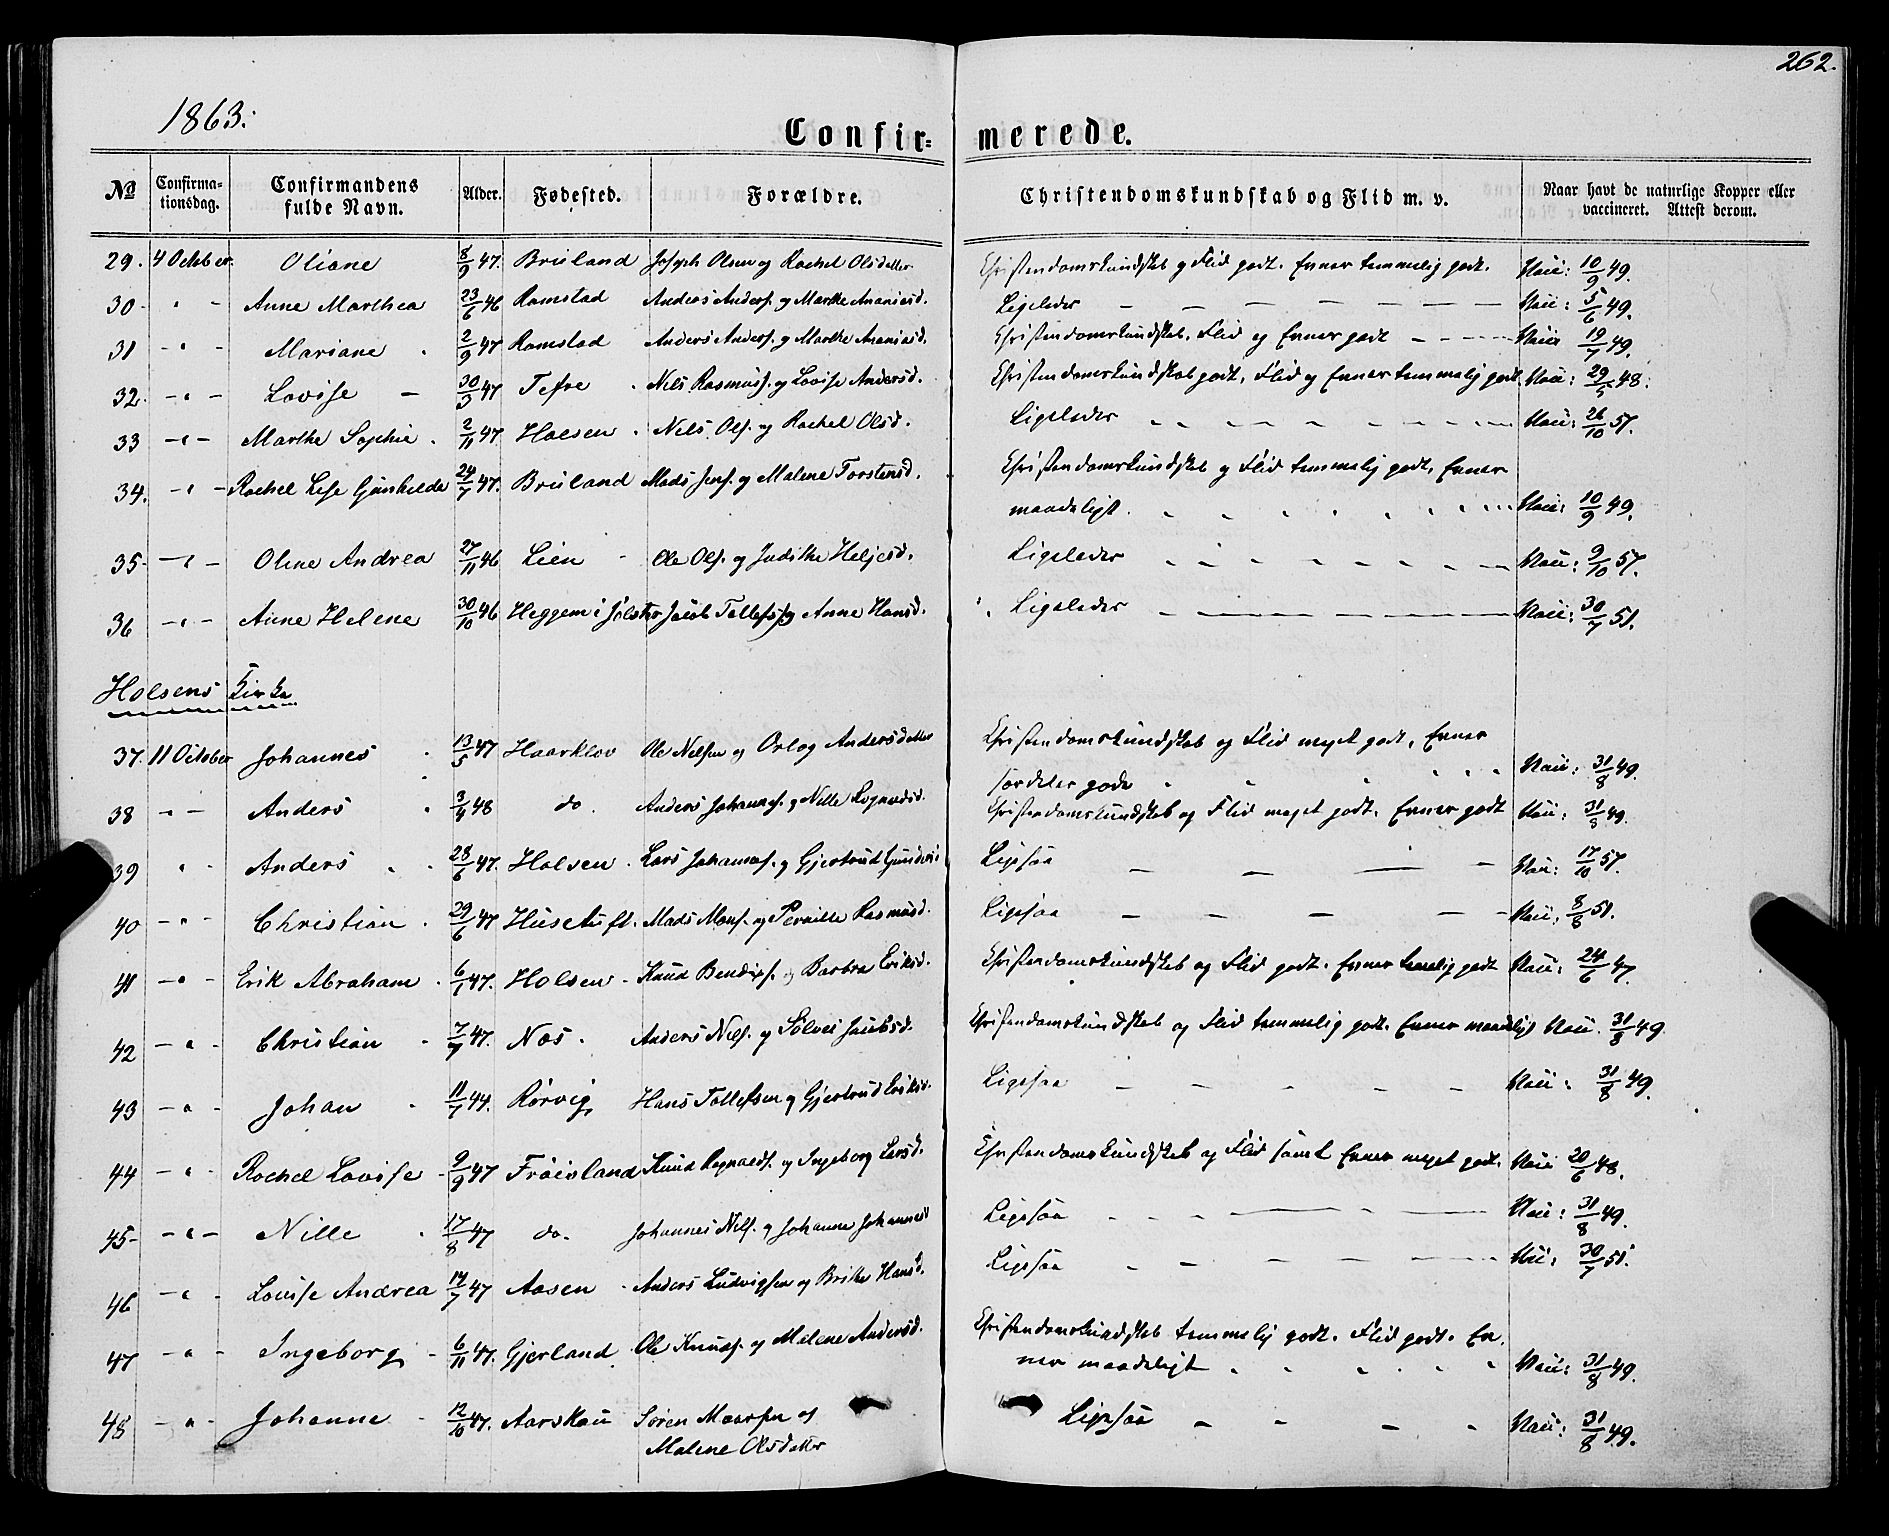 262.
1863.
Confir= merede.
No Confirma-tionsdag. Confirmandens fulde Navn. Alder. Fødested. Forældre. Christendomskundskab og Flid m. v. Naar havt de naturlige Kopper eller vaccineret. Attest derom.
29. 4 October. Oliane 8/9 47. Bruland Joseph Olsen og Rachel Olsdatter Christendomskundskab og Flid godt. Evner temmelig godt. Vacc: 10/9 49.
30 - " - Anne Marthea 23/6 46 Ramstad Anders Anders. og Marthe Ananiasd. Ligeledes Vacc: 5/6 49.
31 - " - Mariane 2/9 47 Ramstad Anders Anders. og Marthe Ananiasd. Christendomskundskab, Flid og Evner godt Vacc 19/7 49.
32. - " - Lovise 30/3 47 Tefre Nils Rasmuss. og Lovise Andersd. Christendomskundskab godt, Flid og Evner temmelig godt. Vacc: 29/5 48.
33 - " - Marthe Sophie 2/11 47. Holsen Nils Ols. og Rachel Olsd. Ligeledes Vacc: 26/10 57.
34. - " - Rachel Lise Gunhilda 24/7 47. Bruland Mads Jens. og Malene Torstensd. Christendomskundskab og Flid temmelig godt, Evner
maadeligt. Vacc: 10/9 49.
35 - " - Oline Andrea 27/11 46 Lien Ole Ols. og Judithe Heljesd. Ligeledes Vacc: 9/10 57.
36 - " - Anne Helene 30/10 46 Heggem i Jølster Jacob Tollefs. og Anne Hansd. Ligeledes Vacc: 30/7 51.
Holsens Kirke
37. 11 October Johannes 13/5 47 Haarklov Ole Nilsen og Orlog Andersdatter Christendomskundskab og Flid meget godt, Evner
særdeles gode Vacc: 31/8 49.
38 - " - Anders 3/4 48 do. Anders Johanness. og Nille Rognaldsd. Christendomskundskab og Flid meget godt. Evner godt Vacc: 31/8 49.
39 " - Anders 28/6 47. Holsen Lars Johanness. og Gjertrud Ligesaa Vacc: 17/10 57.
40 - " - Christian 29/6 47 Husetuft. Mads Mons. og Pernille Rasmusd. Ligesaa Vacc: 8/8 51.
41 - " - Erik Abraham 6/1 47. Holsen Knud Bendixs. og Barbra Eriksd. Christendomskundskab og Flid godt. Evner temelig godt Vacc: 24/6 47.
42 - " - Christian 7/7 47. Nos Anders Nils. og Sølvei Jacobsd. Christendomskundskab og Flid temmelig godt. Evner maadeligt Vacc. 31/8 49.
43 - " - Johan 11/7 47. Rørvig Hans Tollefsen og Gjertrud Eriksd. Ligesaa Vacc: 31/8 49.
44 - " - Rachel Lovise 9/9 47 Frøisland Knud Rognalds. og Ingeborg Larsd. Christendomskundskab og Flid samt Evner meget godt. Vacc 20/6 48.
45 - " - Nille 17/8 47 do. Johannes Nils. og Johanne Johannesd Ligesaa Vacc: 31/8 49.
46 - " - Lovise Andrea 14/7 47 Aasen Anders Ludvigsen og Brithe Hansd. Ligesaa Vacc: 30/7 51.
47 - " - Ingeborg 6/11 47. Gjerland Ole Knuds. og Malene Andersd. Christendomskundskab temmelig godt. Flid godt. Ev-
ner maadeligt Vacc: 31/8 49.
48 - " - Johanne 12/10 47. Aarskau Søren Maarsen og Ligesaa Vacc: 31/8 49.
Malene Olsdatter